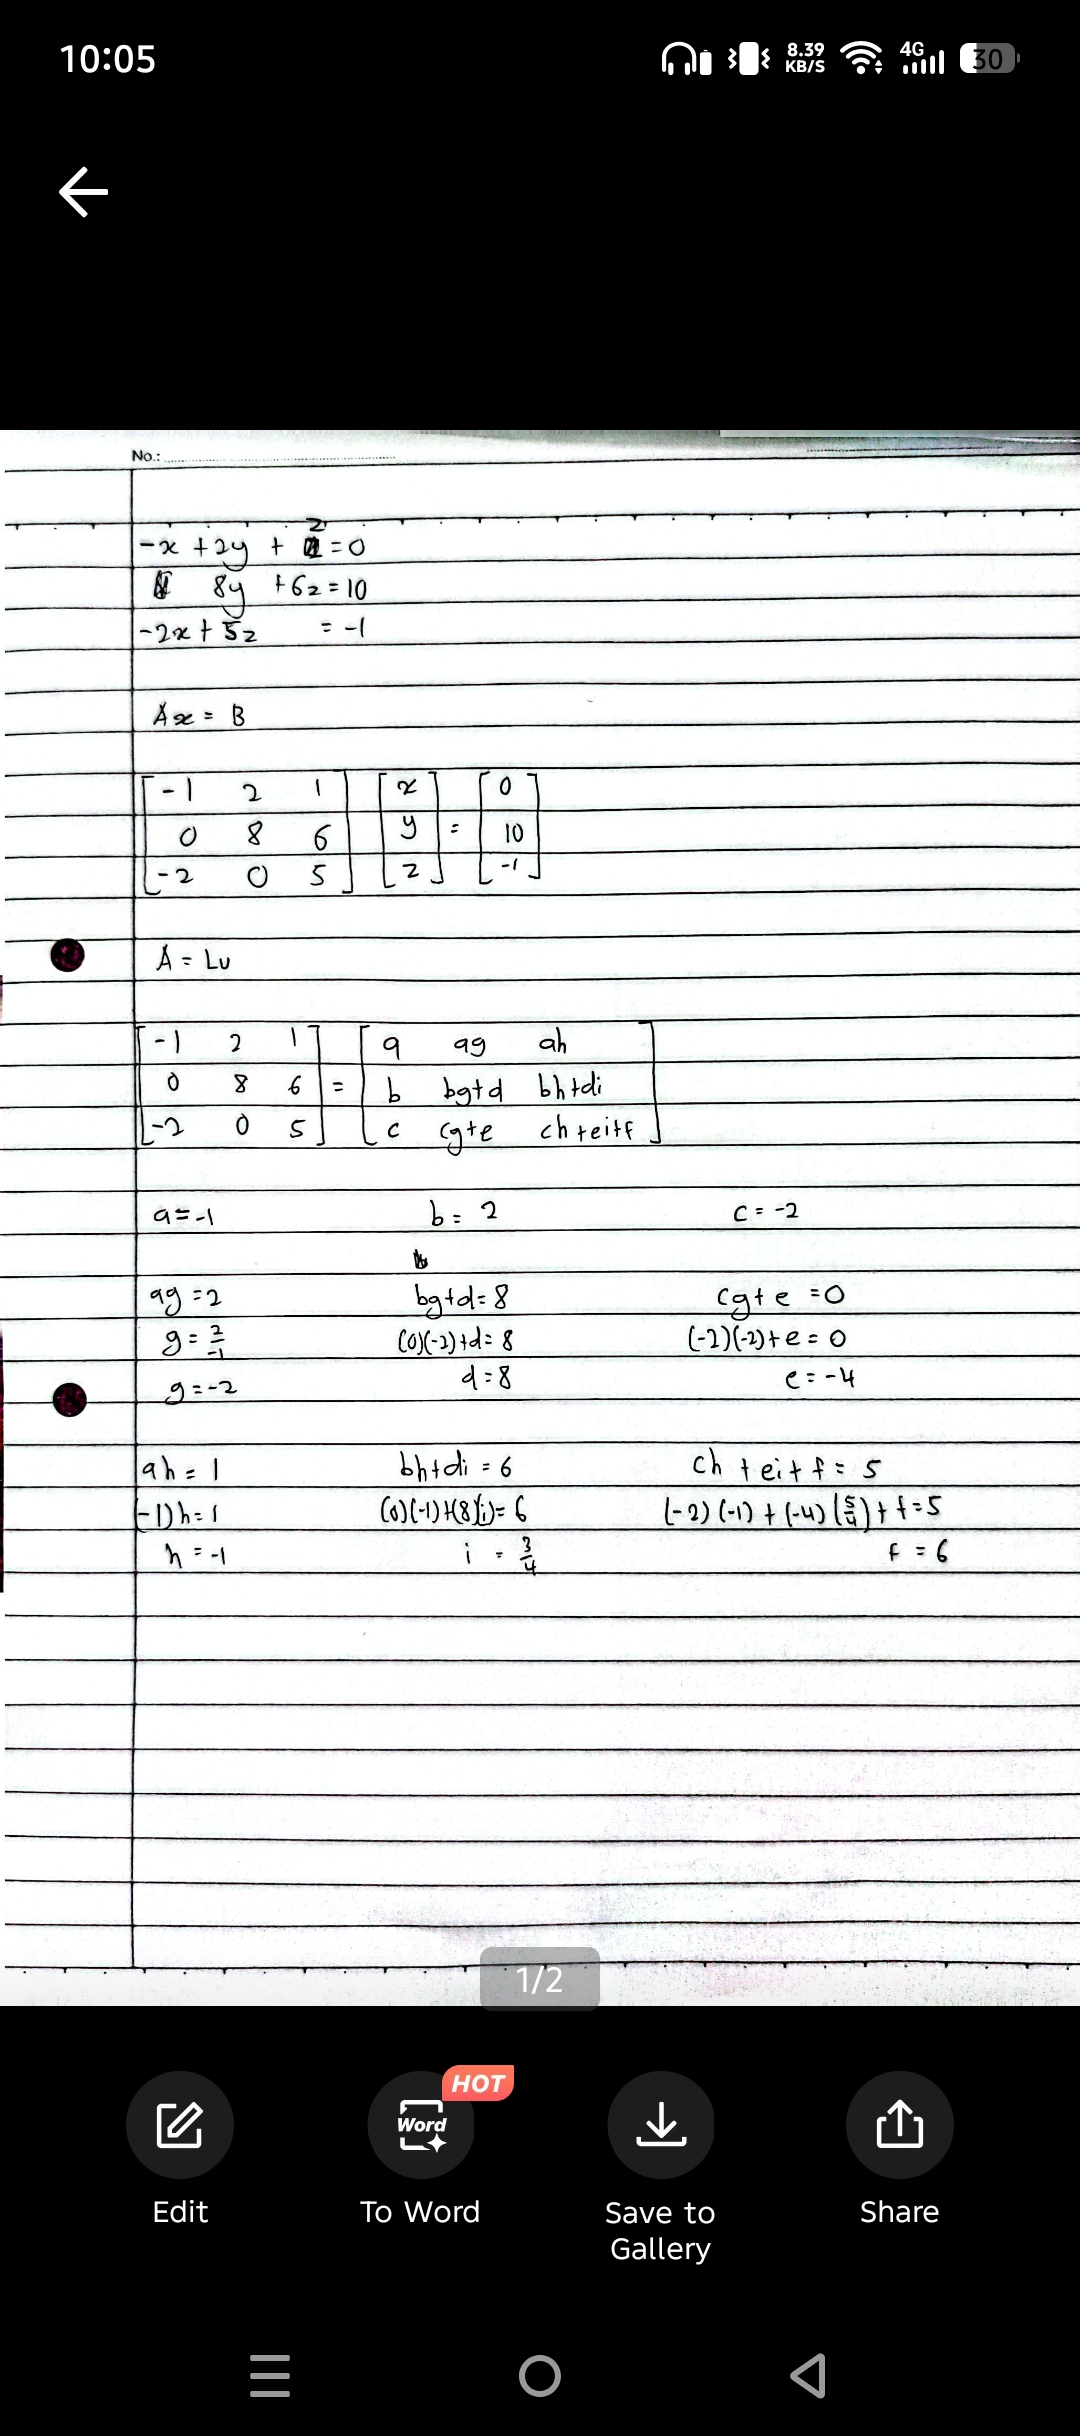 10:05
8.39 KB/S 4G 30
No.:
-x + 2y + z = 0
8y + 6z = 10
-2x + 5z = -1
Ax = B
[ -1 2 1 ] [ x ] [ 0 ]
[ 0 8 6 ] [ y ] = [ 10 ]
[ -2 0 5 ] [ z ] [ -1 ]
A = LU
[ -1 2 1 ] [ a ag ah ]
[ 0 8 6 ] = [ b bg+d bh+di ]
[ -2 0 5 ] [ c cg+e ch+ei+f ]
a = -1 b = 2 c = -2
ag = 2 bg+d = 8 cg+e = 0
g = 2/-1 (0)(-2)+d = 8 (-2)(-2)+e = 0
g = -2 d = 8 e = -4
ah = 1 bh+di = 6 ch + ei + f = 5
(-1)h = 1 (0)(-1)+(8)(i) = 6 (-2)(-1) + (-4)(5/4) + f = 5
h = -1 i = 3/4 f = 6
1/2
HOT
Word
Edit To Word Save to Gallery Share